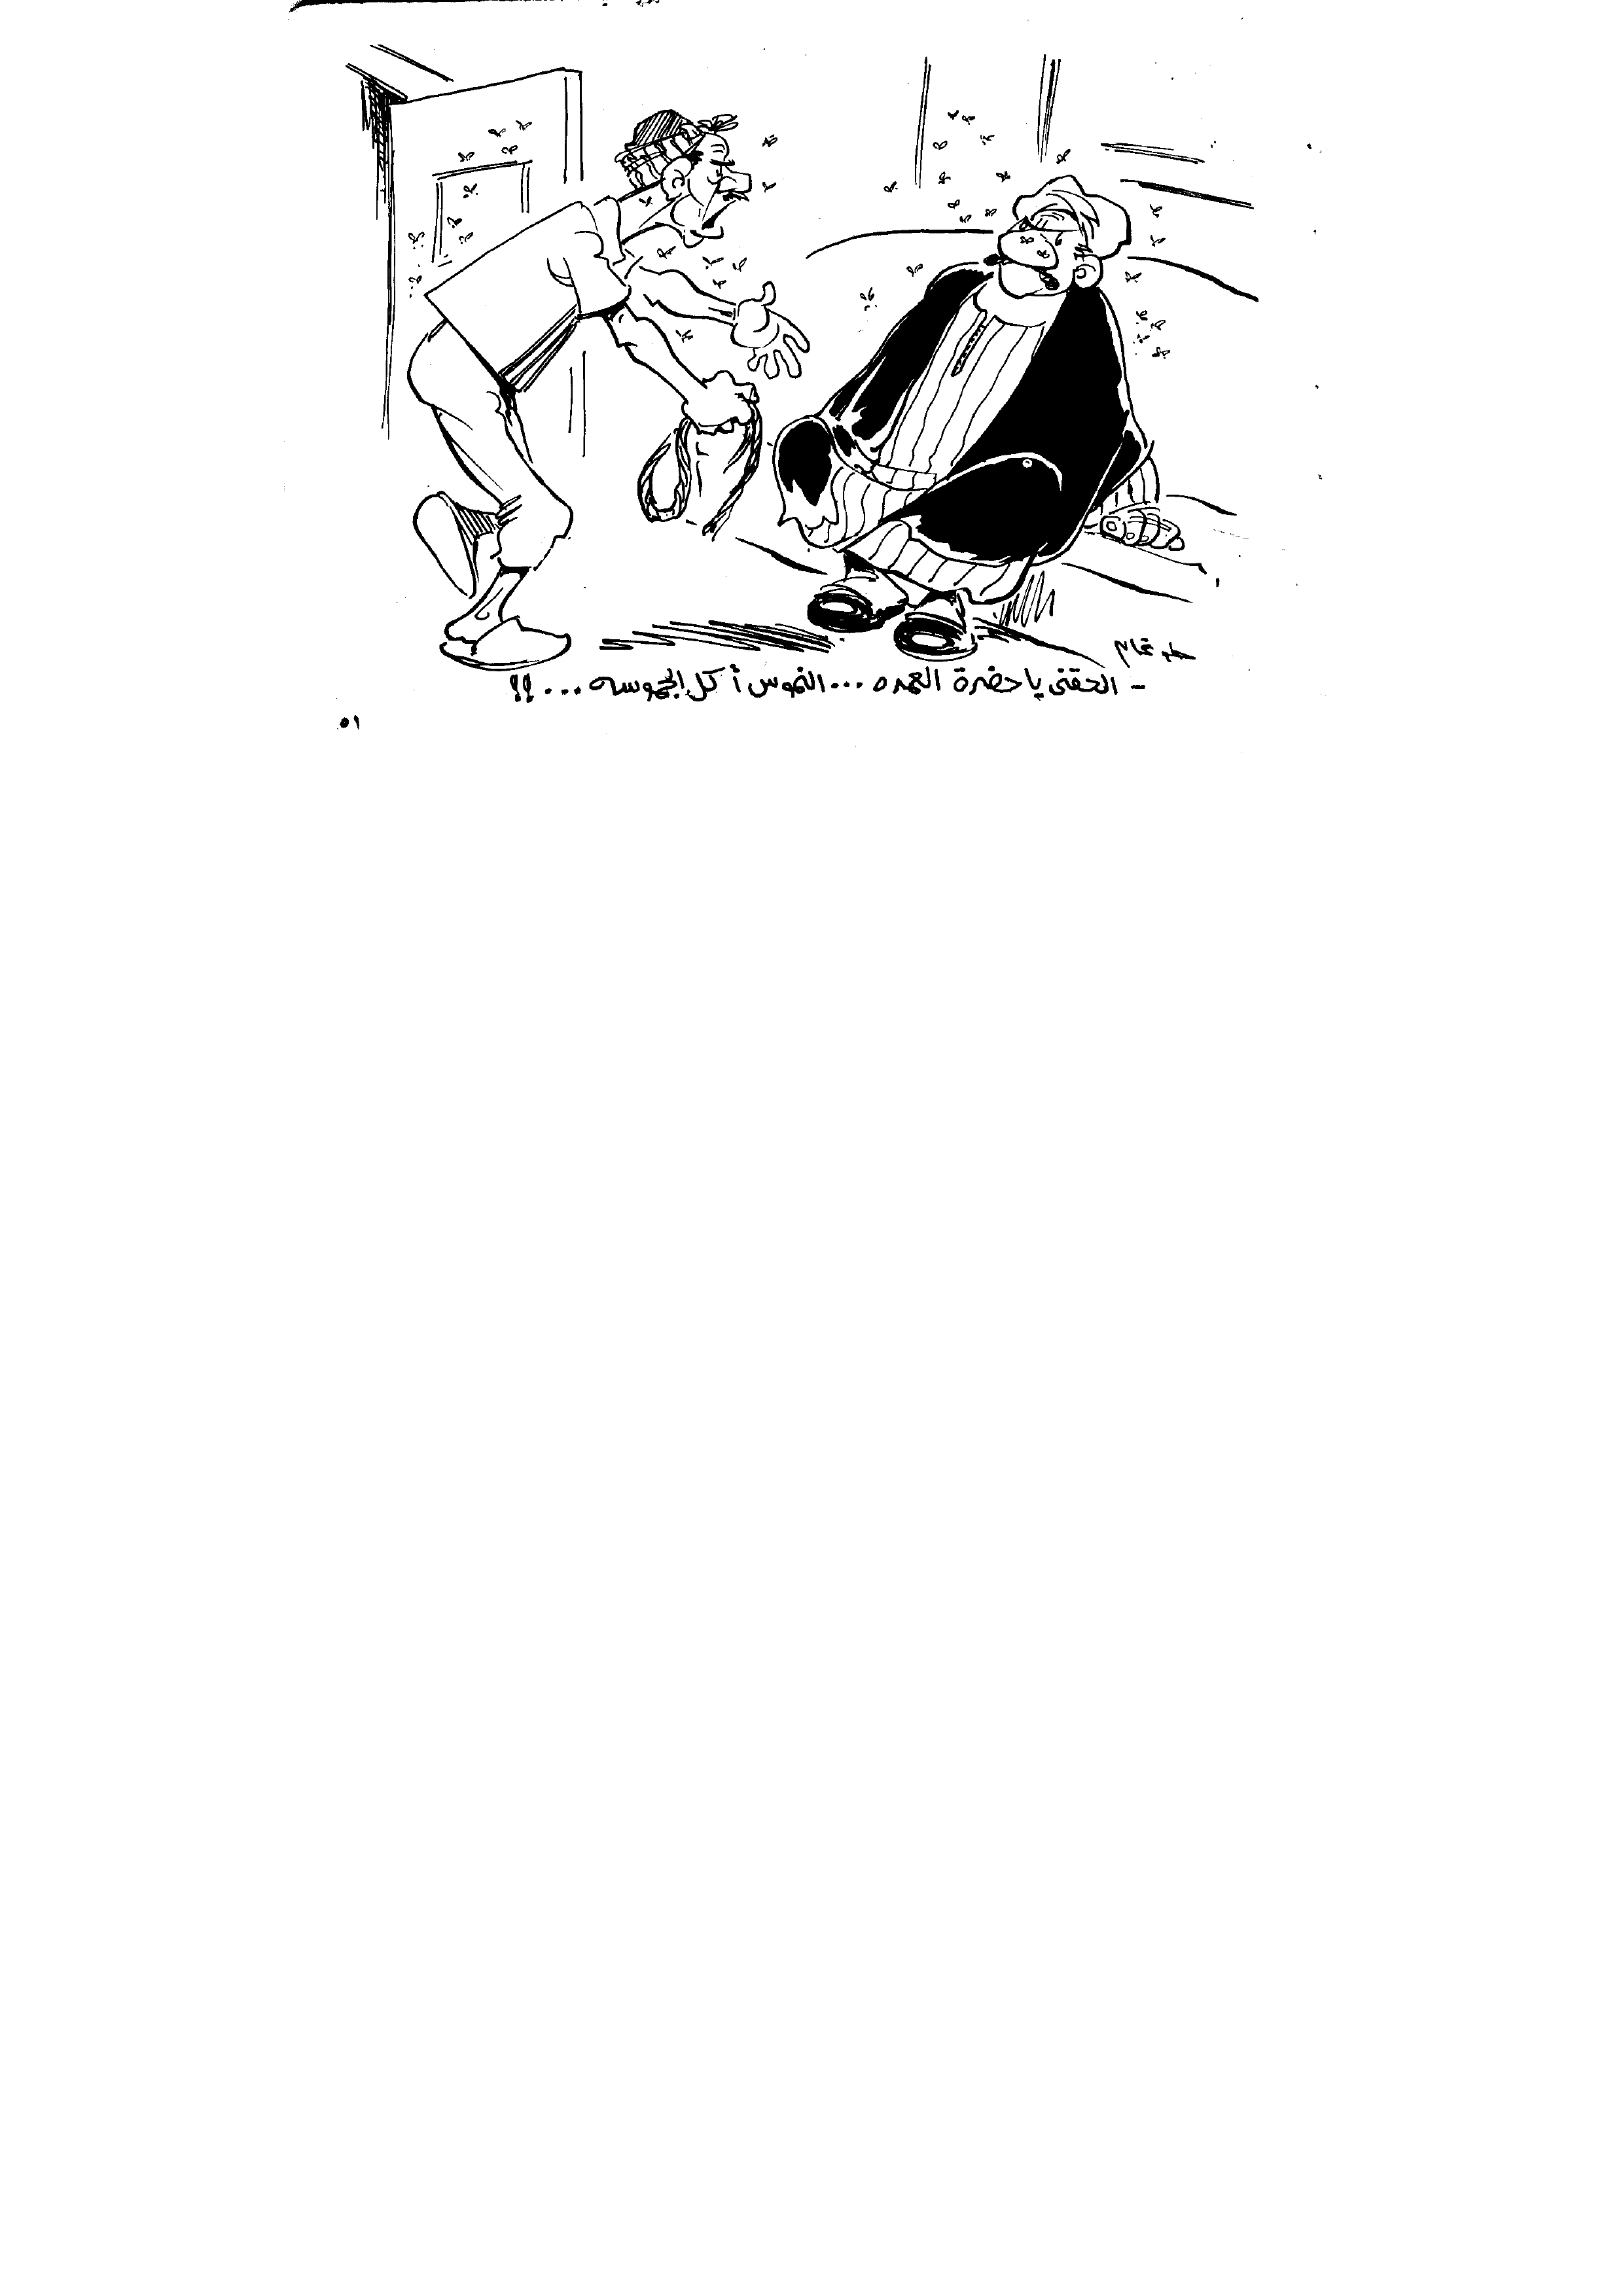 - الحقنى يا حضرة العمده ... الناموس أكل الجموسه ... !!
٥١